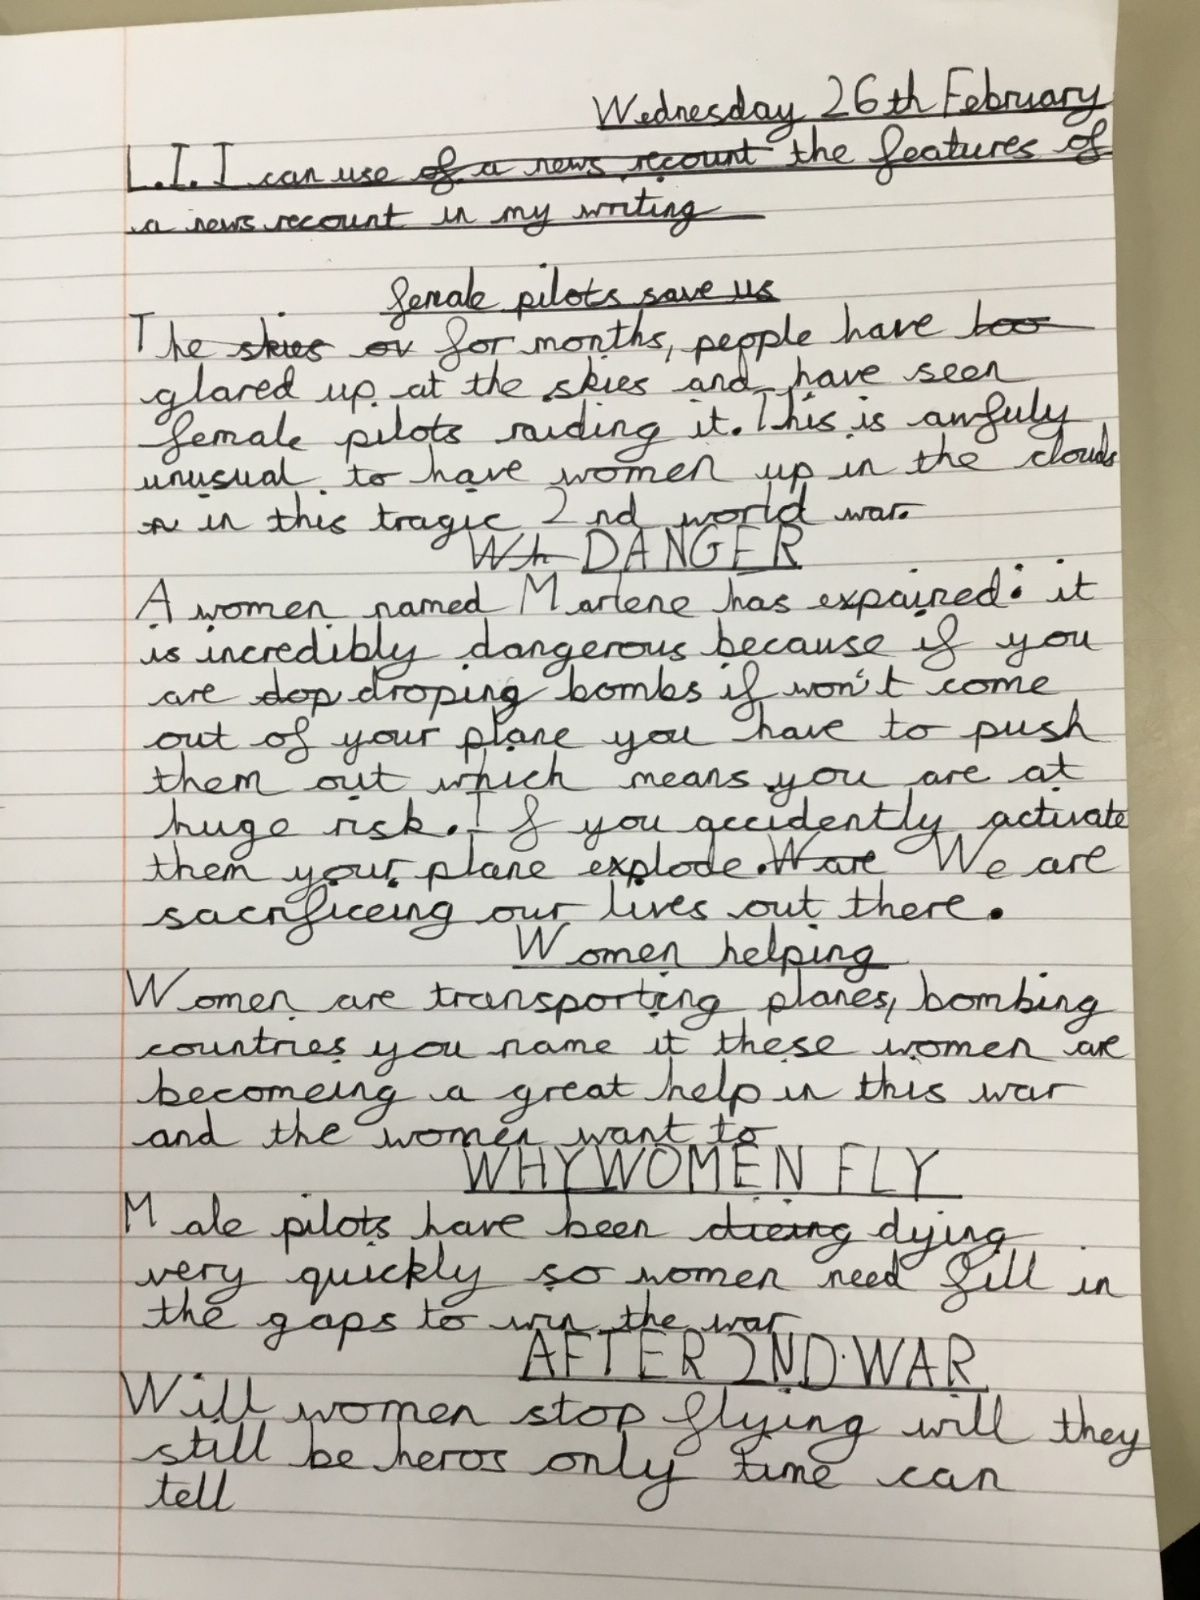 Wednesday 26th February
L.I. I can use of a news recount the features of
a news recount in my writing
female pilots save us
The skies ov for months, people have loo
glared up at the skies and have seen
female pilots raiding it. This is awfuly
unusual to have women up in the clouds
in this tragic 2nd world war.
Wh DANGER
A women named Marlene has expained: it
is incredibly dangerous because if you
are dop droping bombs if won't come
out of your plane you have to push
them out which means you are at
huge risk. If you accidently activate
them your plane explode. W are We are
sacrificeing our lives out there.
Women helping
Women are transporting planes, bombing
countries you name it these women are
becomeing a great help in this war
and the women want to
WHY WOMEN FLY
Male pilots have been dieing dying
very quickly so women need fill in
the gaps to win the war
AFTER 2ND WAR
Will women stop flying will they
still be heros only time can
tell